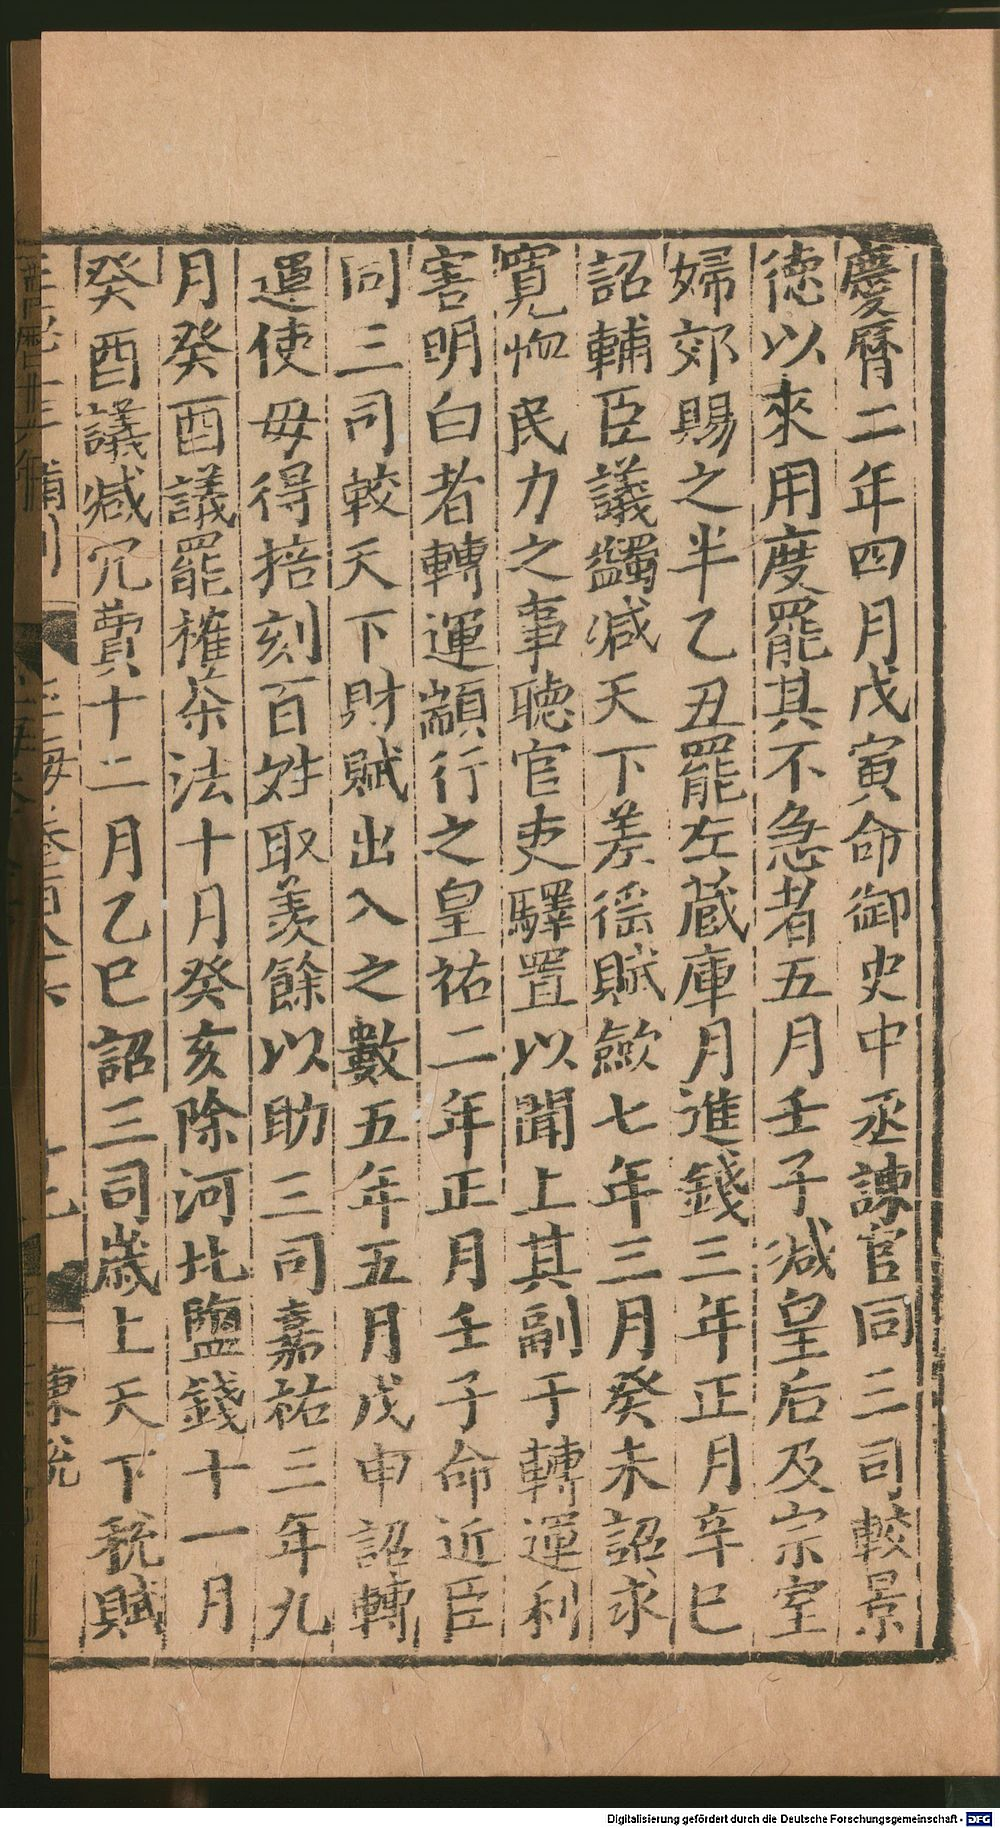 慶曆二年四月戊寅命御史中丞諫官同三司較景
德以來用度罷其不急者五月壬子减皇后及宗室
婦郊賜之半乙丑罷左藏庫月進錢三年正月辛巳
詔輔臣議蠲减天下差徭賦斂七年三月癸未詔求
寬恤民力之事聽官吏驛置以聞上其副于轉運利
害明白者轉運顓行之皇祐二年正月壬子命近臣
同三司較天下財賦出入之數五年五月戊申詔轉
運使毋得掊刻百姓取羨餘以助三司嘉祐三年九
月癸酉議罷榷茶法十月癸亥除河北鹽錢十一月
癸酉議减冗費十二月乙巳詔三司歲上天下稅賦
Digitalisierung gefördert durch die Deutsche Forschungsgemeinschaft - DFG